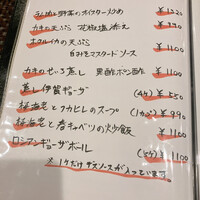 野菜のオイスター炒め ¥1320
カキの天ぷら 花椒塩添え ¥990
ホタルイカの天ぷら
白みそマスタードソース ¥1100
カキのせいろ蒸し 黒酢ポン酢 ¥1100
蒸し伊賀ギョーザ (4ヶ) ¥550
桜海老とフカヒレのスープ (1カップ) ¥990
桜海老と春キャベツの炒飯 ¥1100
ロシアンギョーザボール (ヶ) ¥1100
※1ケだけ ソースが入っています